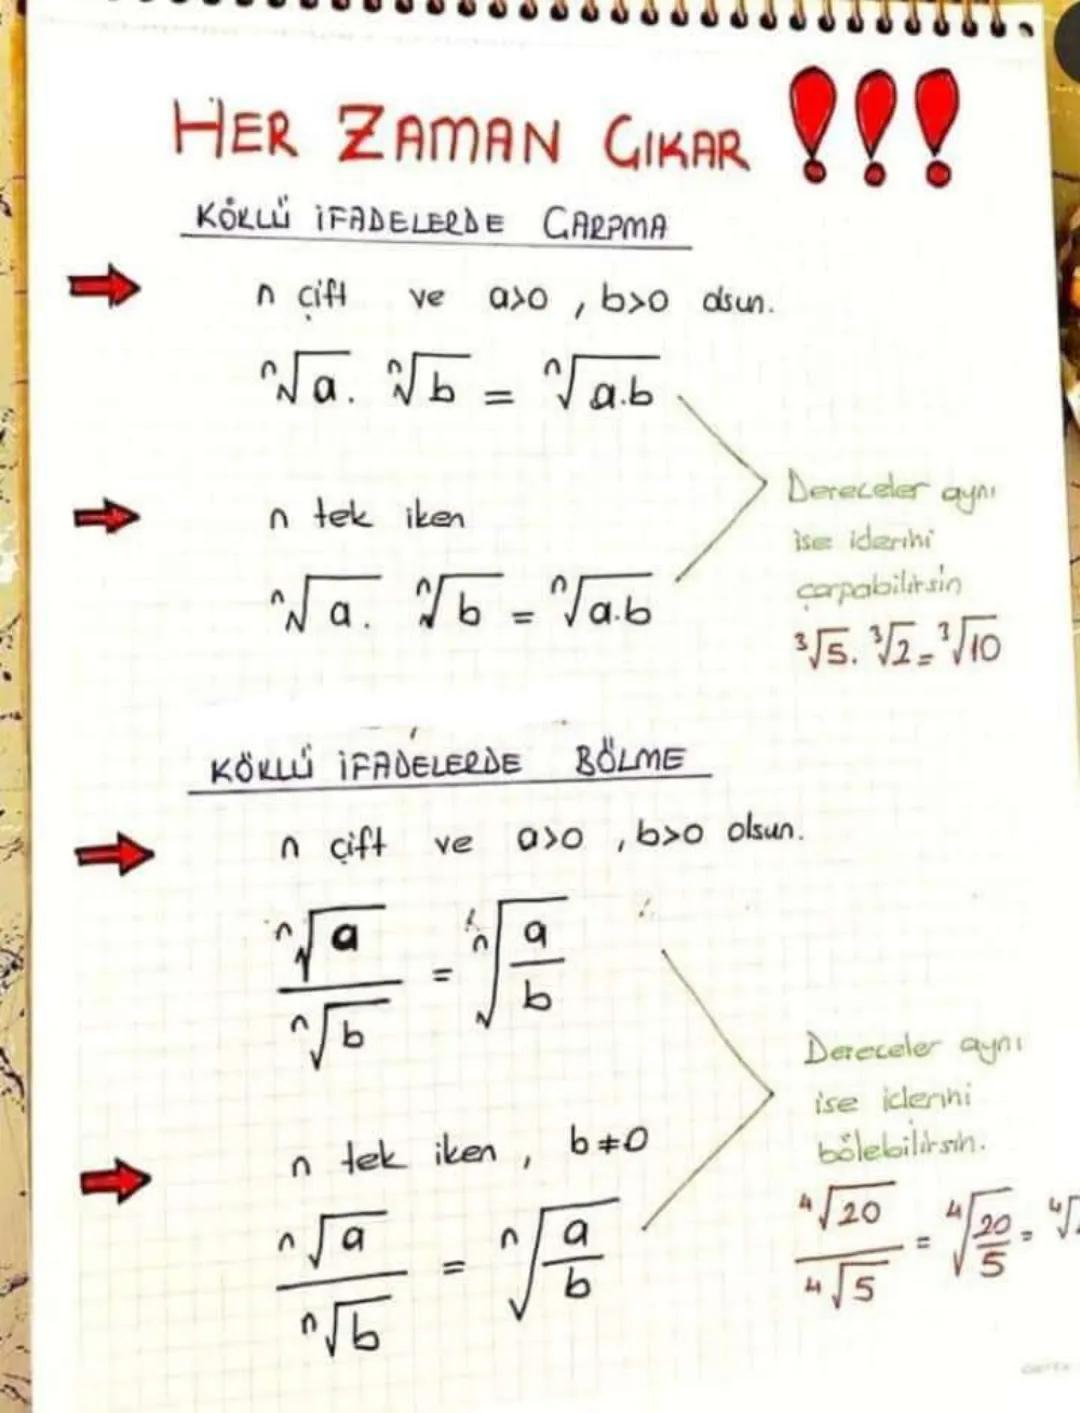 HER ZAMAN ÇIKAR !!!
KÖKLÜ İFADELERDE ÇARPMA
n çift ve a>0 , b>0 olsun.
ⁿ√a . ⁿ√b = ⁿ√a.b
n tek iken
ⁿ√a . ⁿ√b = ⁿ√a.b
Dereceler aynı
ise içlerini
çarpabilirsin
³√5 . ³√2 = ³√10
KÖKLÜ İFADELERDE BÖLME
n çift ve a>0 , b>0 olsun.
ⁿ√a / ⁿ√b = ⁿ√(a/b)
n tek iken , b≠0
ⁿ√a / ⁿ√b = ⁿ√(a/b)
Dereceler aynı
ise içlerini
bölebilirsin.
⁴√20 / ⁴√5 = ⁴√(20/5) = ⁴√